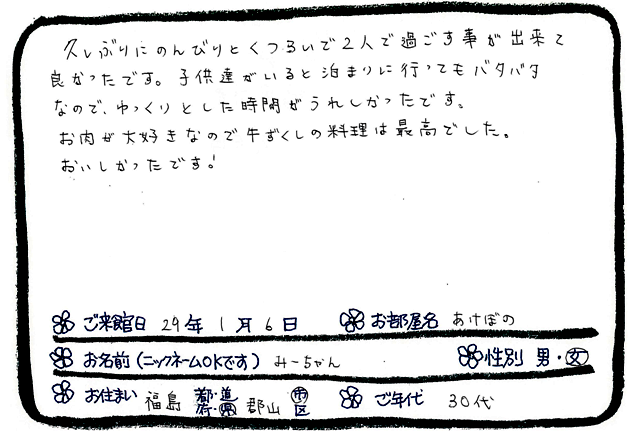 久しぶりにのんびりとくつろいで2人で過ごす事が出来て
良かったです。子供達がいると泊まりに行ってもバタバタ
なので、ゆっくりとした時間がうれしかったです。
お肉が大好きなので牛ずくしの料理は最高でした。
おいしかったです!
ご来館日 29年 1月 6日 お部屋名 あけぼの
お名前(ニックネームOKです) みーちゃん 性別 男・女
お住まい 福島 都・道・府・県 郡山 市 区 ご年代 30代